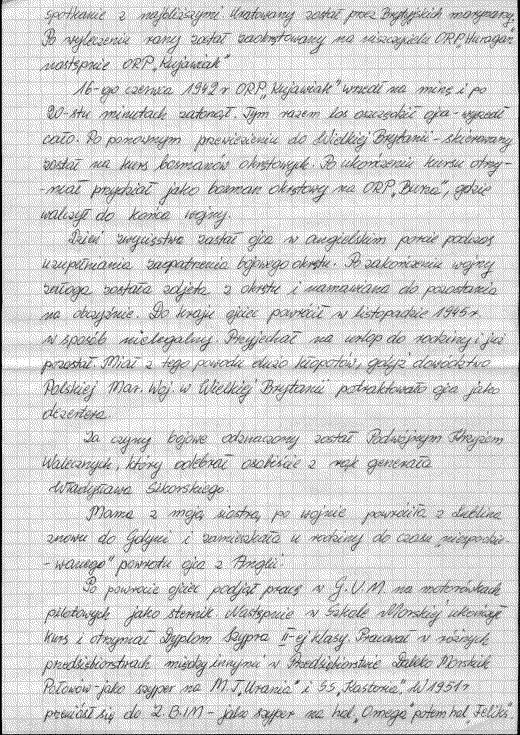 spotkanie z najbliższymi. Uratowany został przez Brytyjskich marynarzy.
Po wyleczeniu rany został zaokrętowany na niszczycielu ORP „Huragan"
następnie ORP „Kujawiak"
16-go czerwca 1942 r ORP „Kujawiak" wszedł na minę i po
20-stu minutach zatonął. Tym razem los oszczędził ojca - wyszedł
cało. Po ponownym przewiezieniu do Wielkiej Brytanii - skierowany
został na kurs bosmanów okrętowych. Po ukończeniu kursu otrzy-
-mał przydział jako bosman okrętowy na ORP „Burza", gdzie
walczył do końca wojny.
Dzień zwycięstwa zastał ojca w angielskim porcie podczas
uzupełniania zaopatrzenia bojowego okrętu. Po zakończeniu wojny
załoga została zdjęta z okrętu i namawiana do pozostania
na obczyźnie. Do kraju ojciec powrócił w listopadzie 1945 r.
w sposób nielegalny. Przyjechał na urlop do rodziny i już
pozostał. Miał z tego powodu dużo kłopotów, gdyż dowództwo
Polskiej Mar. Woj. w Wielkiej Brytanii potraktowało ojca jako
dezertera.
Za czyny bojowe odznaczony został Podwójnym Krzyżem
Walecznych, który odebrał osobiście z rąk generała
Władysława Sikorskiego.
Mama z moją siostrą, po wojnie powróciła z Lublina
znowu do Gdyni i zamieszkała u rodziny do czasu „niespodzie-
-wanego" powrotu ojca z Anglii.
Po powrocie ojciec podjął pracę w G.U.M. na motorówkach
pilotowych jako sternik. Następnie w Szkole Morskiej ukończył
kurs i otrzymał Dyplom Szypra II-ej klasy. Pracował w różnych
przedsiębiorstwach między innymi w Przedsiębiorstwie Daleko Morskich
Połowów - jako szyper na M.T „Urania" i SS „Kastoria". W 1951 r
przeniósł się do Z.B.I.M - jako szyper na hol. „Omega" potem hol. „Feliks".